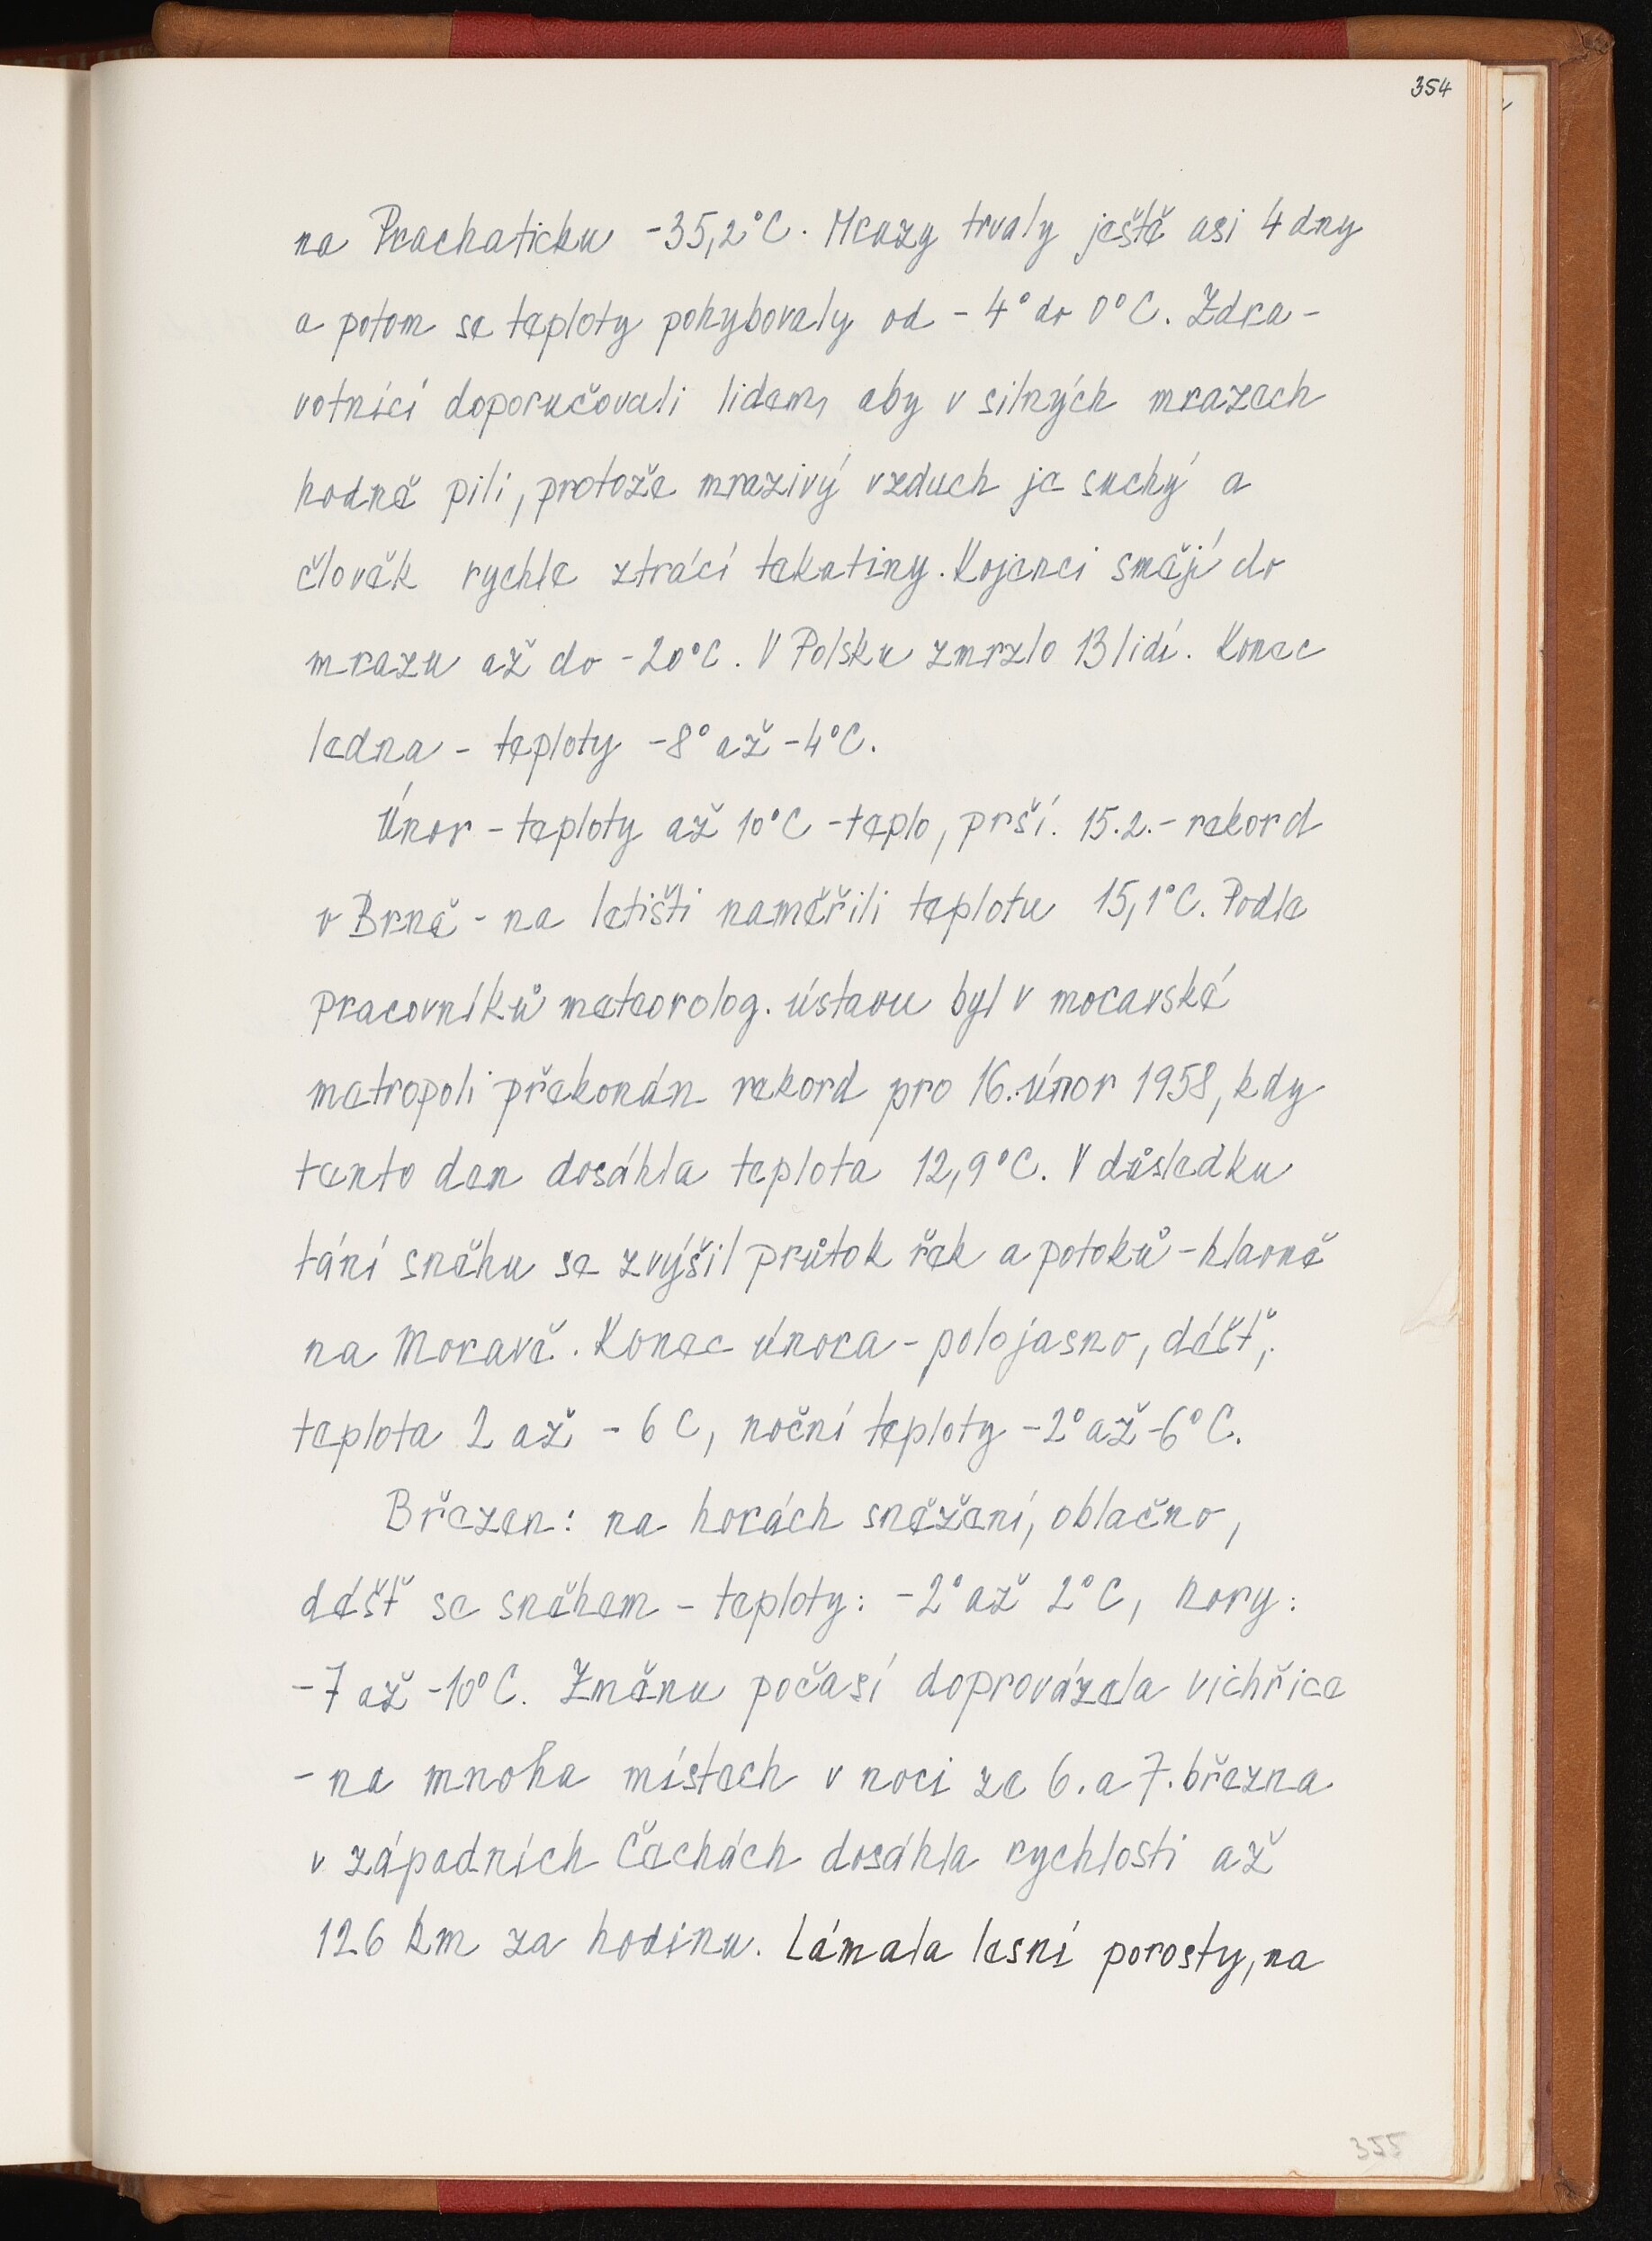 354
na Prachaticku -35,2°C. Mrazy trvaly ještě asi 4 dny
a potom se teploty pohybovaly od - 4° do 0°C. Zdra-
votníci doporučovali lidem, aby v silných mrazech
hodně pili, protože mrazivý vzduch je suchý a
člověk rychle ztrácí tekutiny. Kojenci smějí do
mrazu až do -20°C. V Polsku zmrzlo 13 lidí. Konec
ledna - teploty -8° až -4°C.
Únor - teploty až 10°C - teplo, prší. 15.2. - rekord
v Brně - na letišti naměřili teplotu 15,1°C. Podle
pracovníků meteorolog. ústavu byl v moravské
metropoli překonán rekord pro 16. únor 1958, kdy
tento den dosáhla teplota 12,9°C. V důsledku
tání sněhu se zvýšil průtok řek a potoků - hlavně
na Moravě. Konec února - polojasno, déšť,
teplota 2 až - 6 C, noční teploty -2° až -6°C.
Březen: na horách sněžení, oblačno,
déšť se sněhem - teploty: -2° až 2°C, hory:
-7 až -10°C. Změnu počasí doprovázela vichřice
- na mnoha místech v noci ze 6. a 7. března
v západních Čechách dosáhla rychlosti až
126 km za hodinu. Lámala lesní porosty, na
355